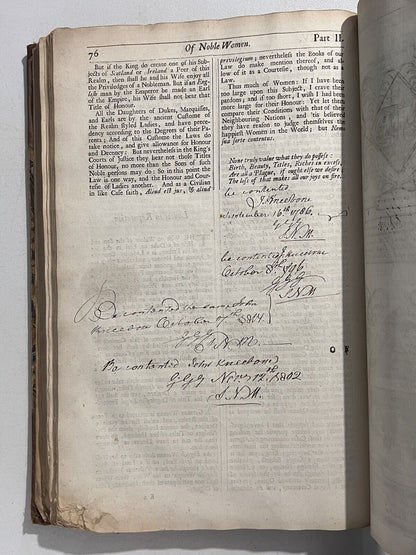 76
Of Noble Women.
Part II.
But if the King do create one of his Sub-
jects of Scotland or Ireland a Peer of this
Realm, then shall he and his Wife enjoy all
the Priviledges of a Nobleman. But if an Eng-
lish man by the Emperor be made an Earl
of the Empire, his Wife shall not bear that
Title of Honour.
All the Daughters of Dukes, Marquisses,
and Earls are by the ancient Custome of
the Realm styled Ladies, and have prece-
dency according to the Degrees of their Pa-
rents; And of this Custome the Laws do
take notice, and give allowance for Honour
and Decency: But nevertheless in the King's
Courts of Justice they bear not those Titles
of Honour, no more than the Sons of such
Noble persons may do: So in this point the
Law is one way, and the Honour and Cour-
tesie of Ladies another. And as a Civilian
in like Case saith, Aliud est jus, & aliud
privilegium; nevertheless the Books of our
Law do make mention thereof, and al-
low of it as a Courtesie, though not as a
Law.
Thus much of Women: If I have been
too large upon this Subject, I crave their
pardon; and if too short, I wish I had been
more large for their Honour: Yet let them
compare their Conditions with that of their
Neighbouring Nations, and I believe
they have reason to judge themselves the
happiest Women in the World; but Nemo
sua sorte contentus.
None truly value what they do possess:
Birth, Beauty, Titles, Riches in excess,
Are all a Plague, if ought else we desire
The less of that makes all our joys on fire.
be contented
J. Kneebone
September 16th 1786.
J.N.M.
be contented J. Kneebone
October 8th
J.N.M
Be contented John
Kneebone October 1814
J.N.M.
Be contented John Kneebone
Novr 12th 1802
J.N.M.